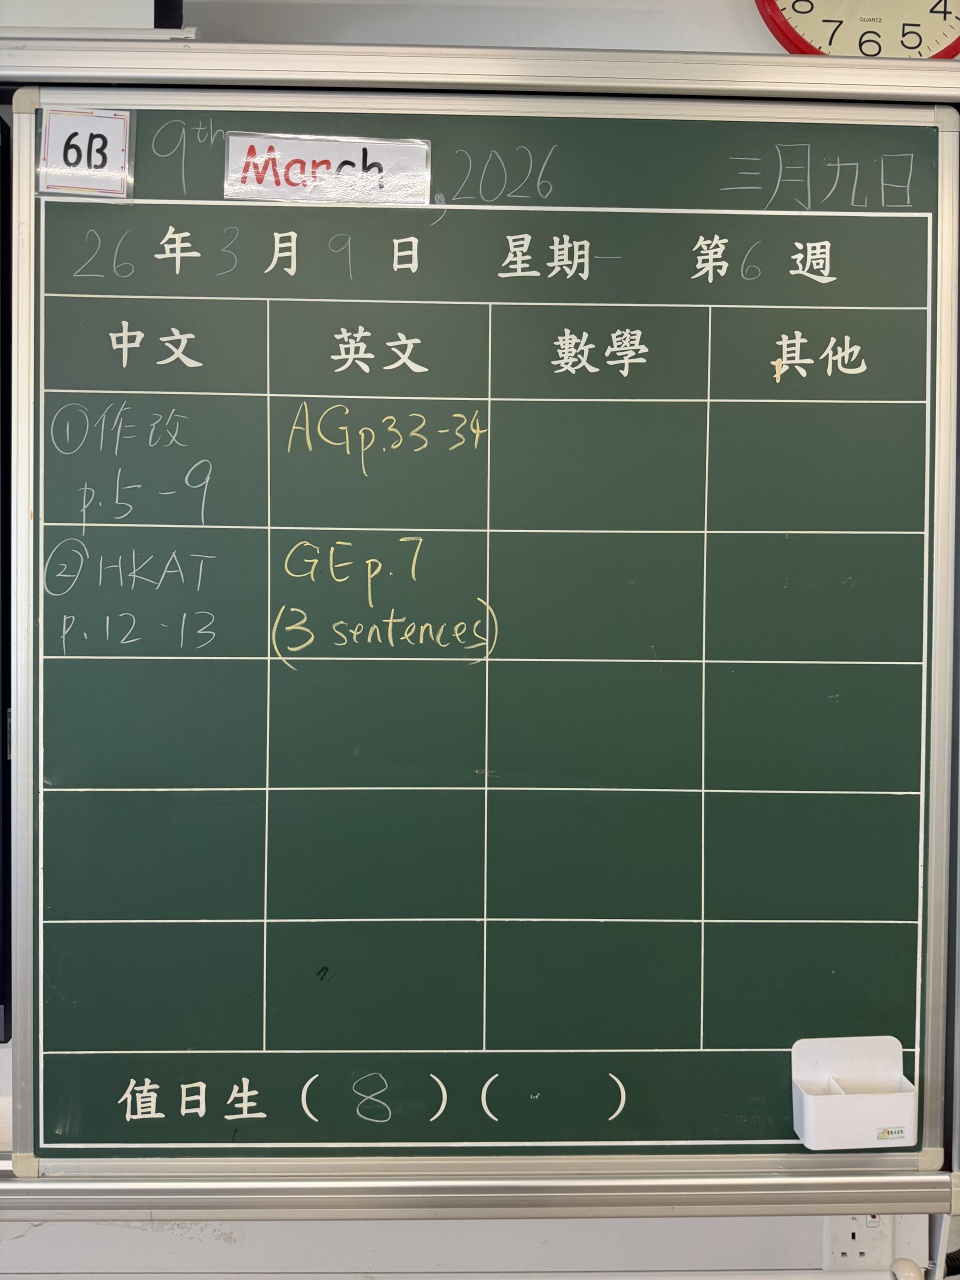 8 7 6 5 4
QUARTZ
6B 9th March, 2026 三月九日
26年3月9日 星期一 第6週
中文 英文 數學 其他
①作改 AGp.33-34
p.5-9
②HKAT GEp.7
p.12-13 (3 sentences)
值日生(8)( )